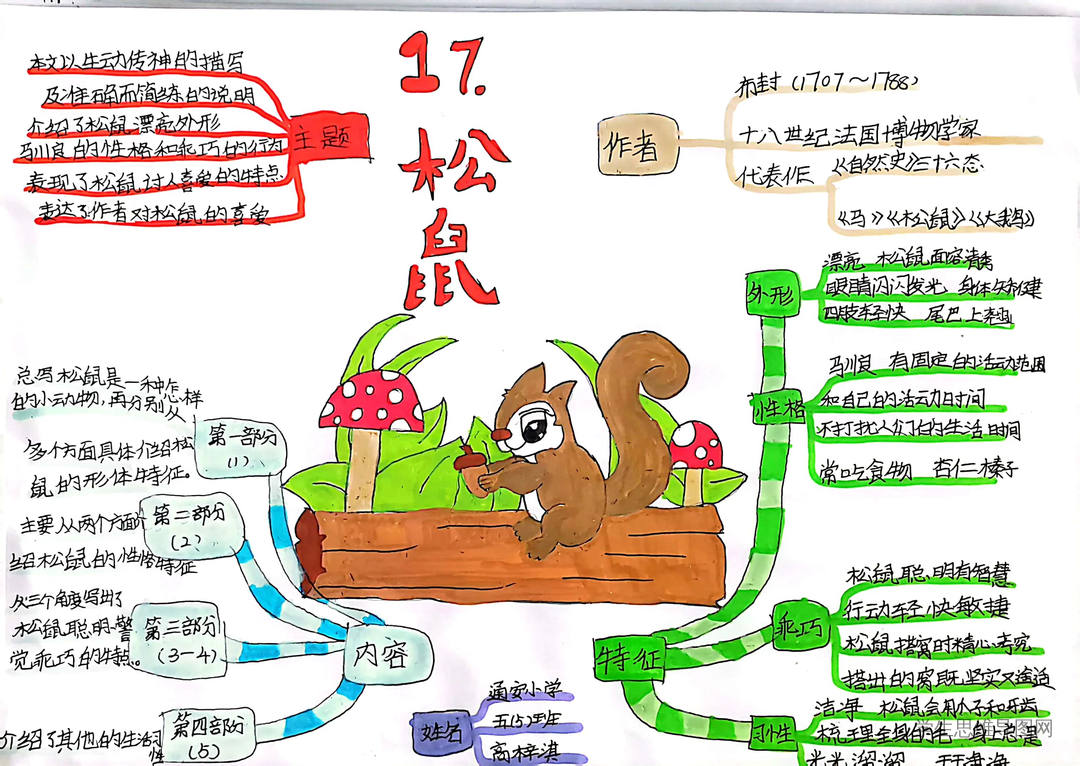 17.
松
鼠
主题
本文以生动传神的描写
及准确而简练的说明
介绍了松鼠漂亮外形
驯良的性格和乖巧的行为
表现了松鼠讨人喜爱的特点
表达了作者对松鼠的喜爱
作者
布封(1707～1788)
十八世纪法国博物学家
代表作《自然史》三十六态
《马》《松鼠》《大鹅》
外形
漂亮 松鼠面容清秀
眼睛闪闪发光 身体矫健
四肢轻快 尾巴上翘
性格
驯良 有固定的活动范围
和自己的活动时间
不打扰人们的生活时间
常吃食物 杏仁榛子
特征
乖巧
松鼠聪明有智慧
行动轻快敏捷
松鼠搭窝时精心考究
搭出的窝既坚实又舒适
习性
洁净 松鼠会用爪子和牙齿
梳理全身的毛 身上总是
内容
第一部分
(1)
总写松鼠是一种怎样
的小动物,再分别从
多个方面具体介绍松
鼠的形体特征。
第二部分
(2)
主要从两个方面介
绍松鼠的性格特征
第三部分
(3-4)
从三个角度写出了
松鼠聪明,警
觉乖巧的特点。
第四部分
(5)
介绍了其他的生活习
性
姓名
通安小学
五(5)班
高梓淇
学生思维导图网